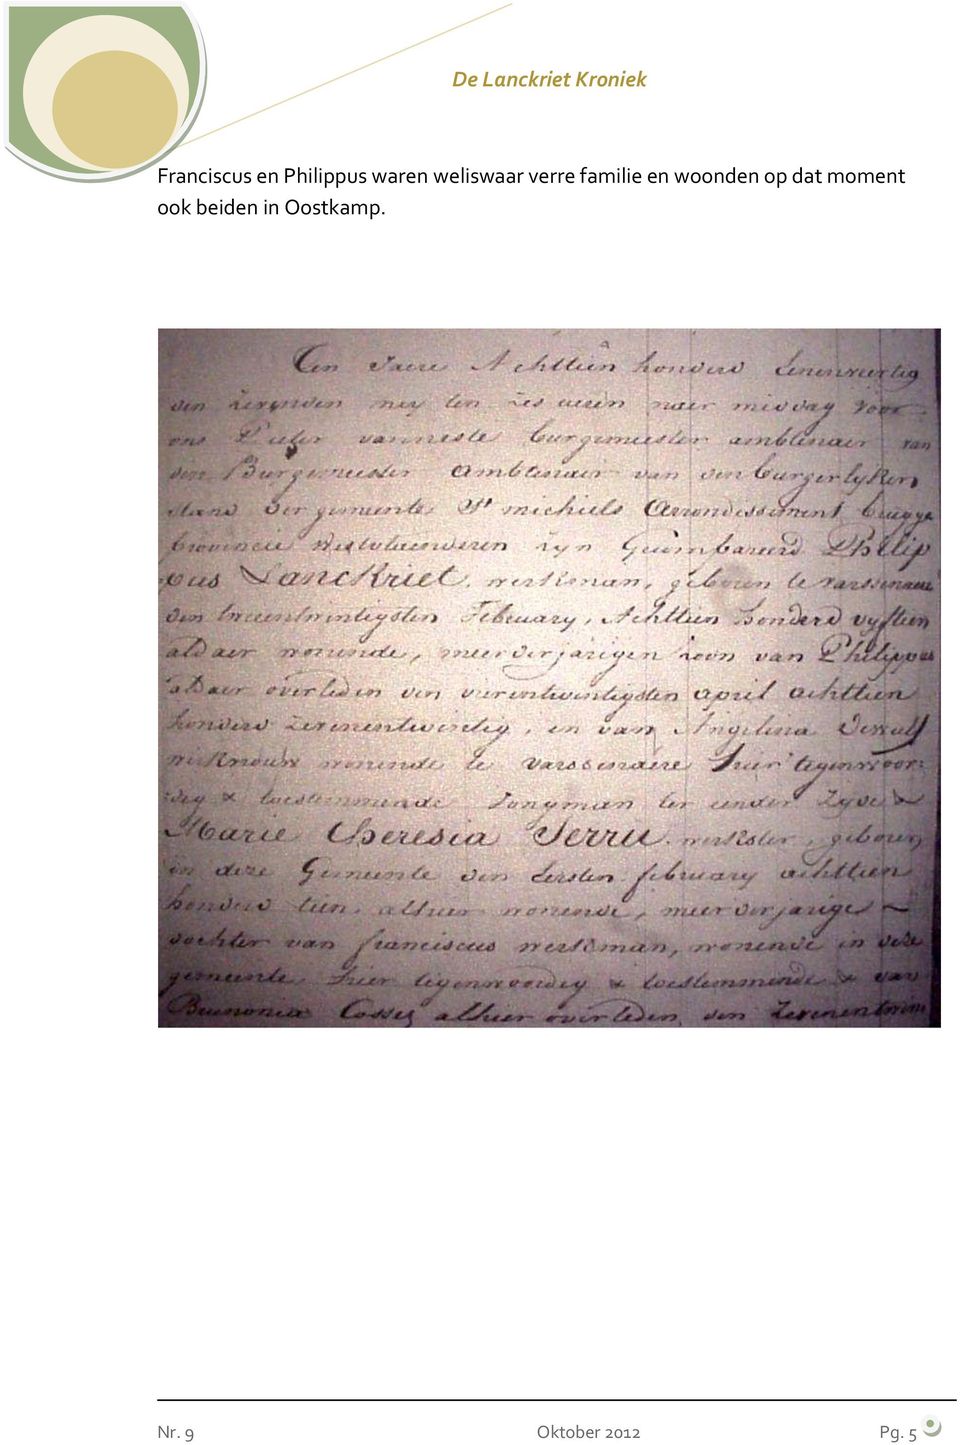 De Lanckriet Kroniek
Franciscus en Philippus waren weliswaar verre familie en woonden op dat moment
ook beiden in Oostkamp.
Ten Jaere Achttien honderd Eenenveertig
den Zevensten mey ten zes ueren naer middag voor
ons Pieter vanneste burgemeester ambtenaer van
door Burgemeester ambtenaer van den burgerlyken
stand der gemeente St michiels Arrondissement brugge
provincie Westvlaenderen zyn Gecompareerd Philip
pus Lanckriet, werkman, geboren te varssenaere
den tweentwintigsten February, Achttien honderd vyftien
aldaer wonende, meerderjarigen zoon van Philippus
aldaer overleden den vierentwintigsten april achttien
honderd zevenentwintig, en van Angelina
werkvrouw wonende te varssenaere hier tegenwoor-
dig & toestemmende Jongman ter eender zyde &
Marie Theresia Serru, werkster, geboren
in deze Gemeente den Eersten february achttien
honderd tien, alhier wonende, meerderjarige
dochter van franciscus werkman, wonende in deze
gemeente hier tegenwoordig & toestemmende & van
Cosse alhier overleden den Zevenentwin
Nr. 9 Oktober 2012 Pg. 5